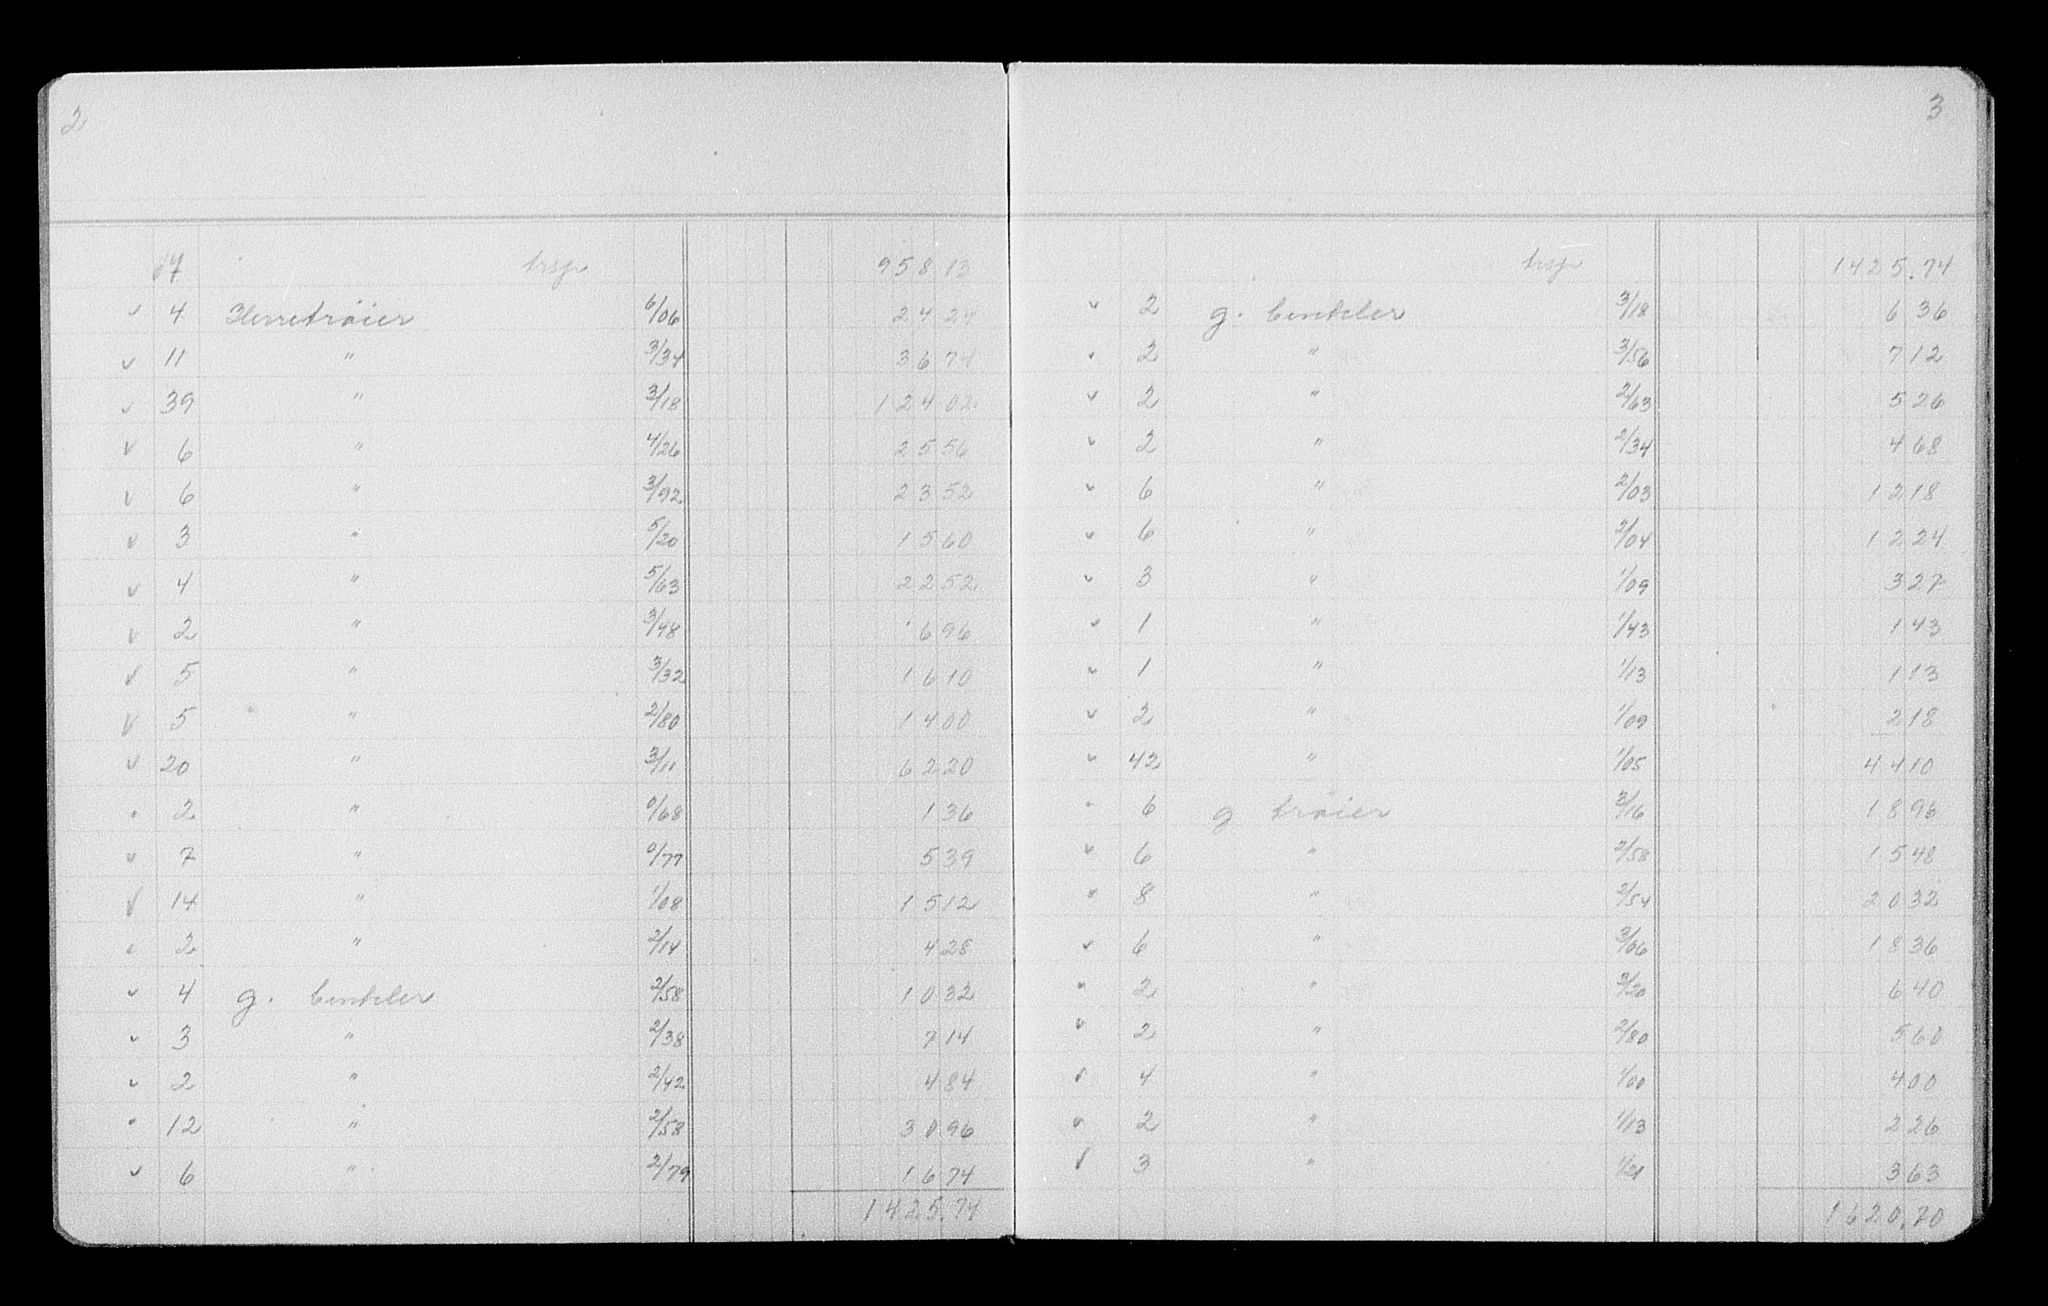 2
17 trsp 958 13
v 4 Herretrøier 6/06 24 24
v 11 " 3/34 36 74
v 39 " 3/18 124 02
v 6 " 4/26 25 56
v 6 " 3/92 23 52
v 3 " 5/20 15 60
v 4 " 5/63 22 52
v 2 " 3/48 6 96
v 5 " 3/32 16 10
v 5 " 2/80 14 00
v 20 " 3/11 62 20
2 " 0/68 1 36
v 7 " 0/77 5 39
v 14 " 1/08 15 12
2 " 2/14 4 28
v 4 g. benkler 2/58 10 32
v 3 " 2/38 7 14
v 2 " 2/42 4 84
12 " 2/58 30 96
v 6 " 2/79 16 74
1425.74
3
trsp 1425.74
v 2 g. benkler 3/18 6 36
2 " 3/56 7 12
v 2 " 2/63 5 26
v 2 " 2/34 4 68
v 6 " 2/03 12 18
v 6 " 2/04 12 24
v 3 " 1/09 3 27
v 1 " 1/43 1 43
v 1 " 1/13 1 13
v 2 " 1/09 2 18
v 42 " 1/05 44 10
6 g trøier 3/16 18 96
v 6 " 2/58 15 48
8 " 2/54 20 32
v 6 " 3/06 18 36
2 " 3/20 6 40
v 2 " 2/80 5 60
v 4 " 1/00 4 00
v 2 " 1/13 2 26
v 3 " 1/21 3 63
1620.70